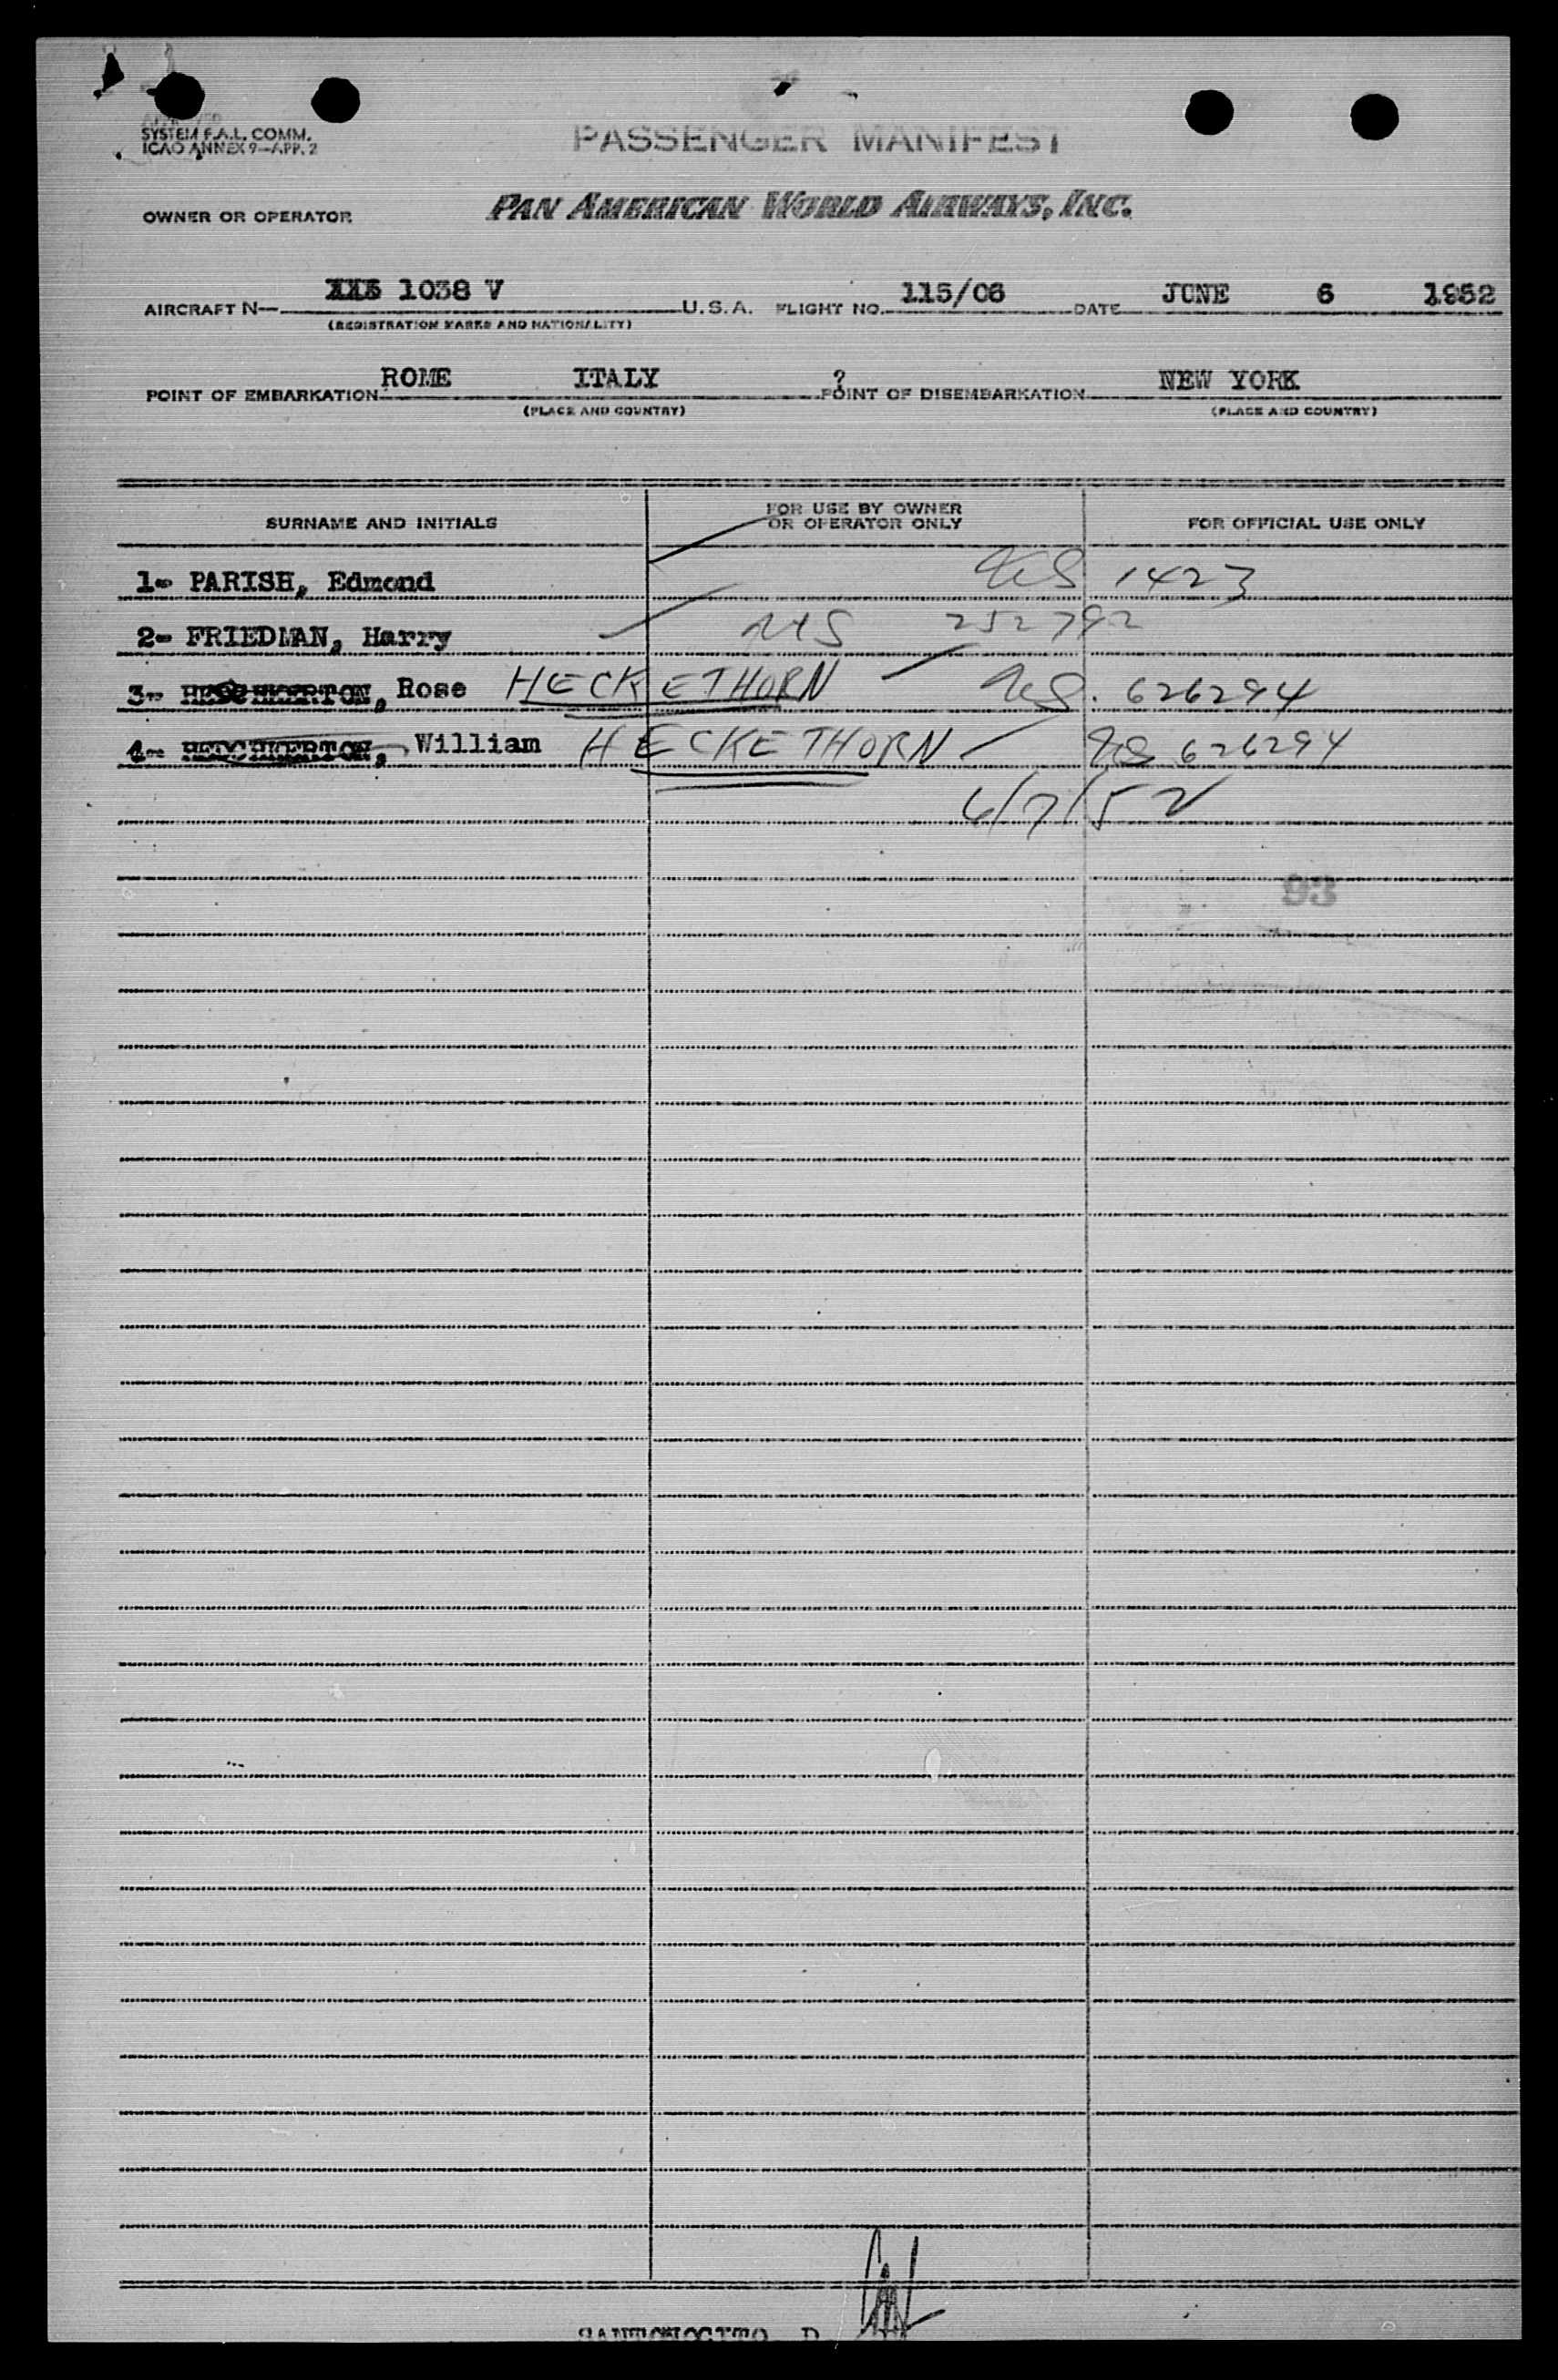 SYSTEM F.A.L. COMM.
ICAO ANNEX 9—APP. 2
PASSENGER MANIFEST
OWNER OR OPERATOR PAN AMERICAN WORLD AIRWAYS, INC.
AIRCRAFT N— 1038 V U.S.A. FLIGHT NO. 115/06 DATE JUNE 6 1952
(REGISTRATION MARKS AND NATIONALITY)
POINT OF EMBARKATION ROME ITALY ? POINT OF DISEMBARKATION NEW YORK
(PLACE AND COUNTRY) (PLACE AND COUNTRY)
SURNAME AND INITIALS FOR USE BY OWNER OR OPERATOR ONLY FOR OFFICIAL USE ONLY
1- PARISH, Edmond US 1423
2- FRIEDMAN, Harry US 252792
3- Rose HECKETHORN US. 626294
4- William HECKETHORN US 626294
6/7/52
93